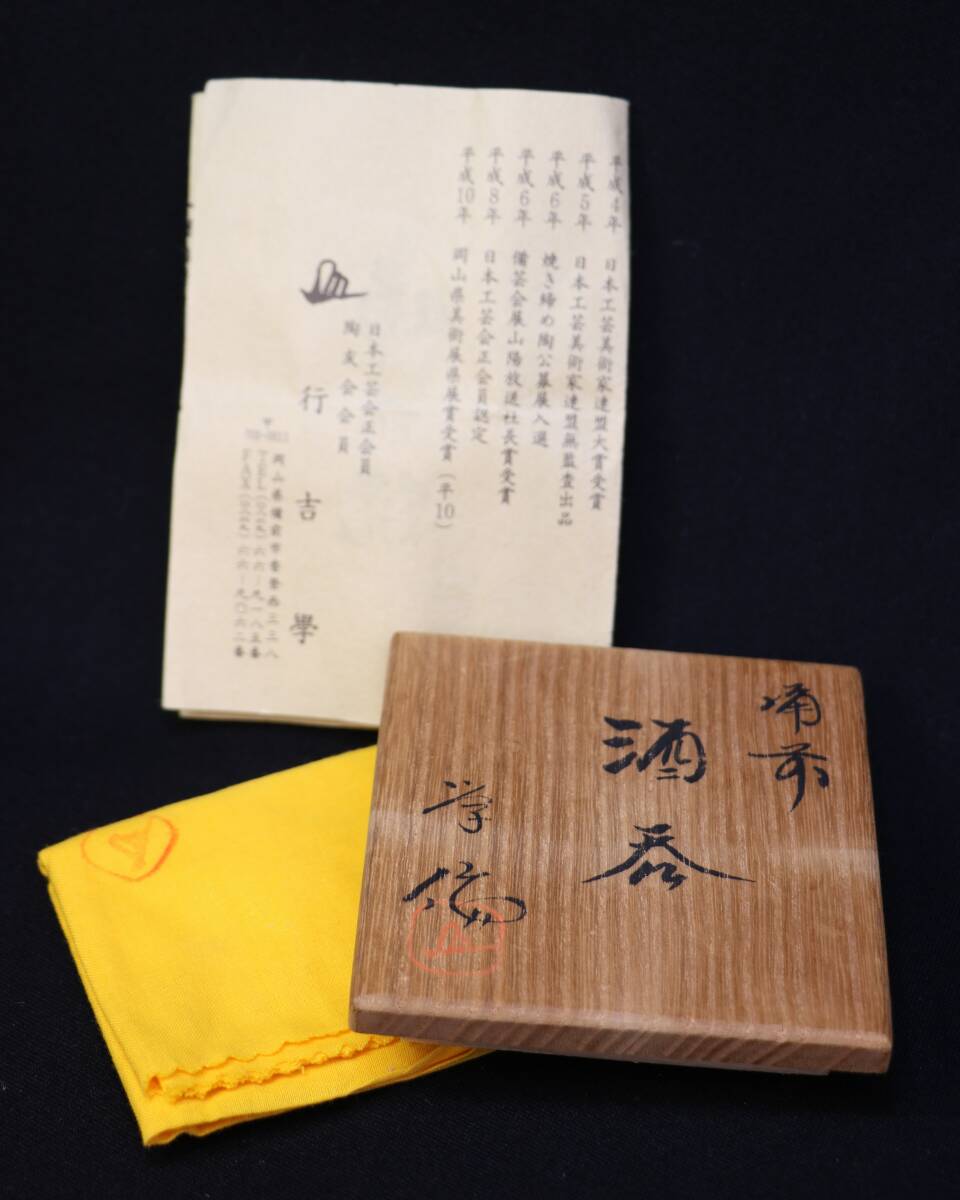 平成4年 日本工芸美術家連盟大賞受賞
平成5年 日本工芸美術家連盟無監査出品
平成6年 焼き締め陶公募展入選
平成6年 備芸会展山陽放送社長賞受賞
平成8年 日本工芸会正会員認定
平成10年 岡山県美術展県展賞受賞(平10)
日本工芸会正会員
陶友会会員
行吉學
〒
岡山県備前市香登西三三八
TEL(〇八六九)六六-九一八五番
FAX(〇八六九)六六-九〇六二番
備前
酒呑
学